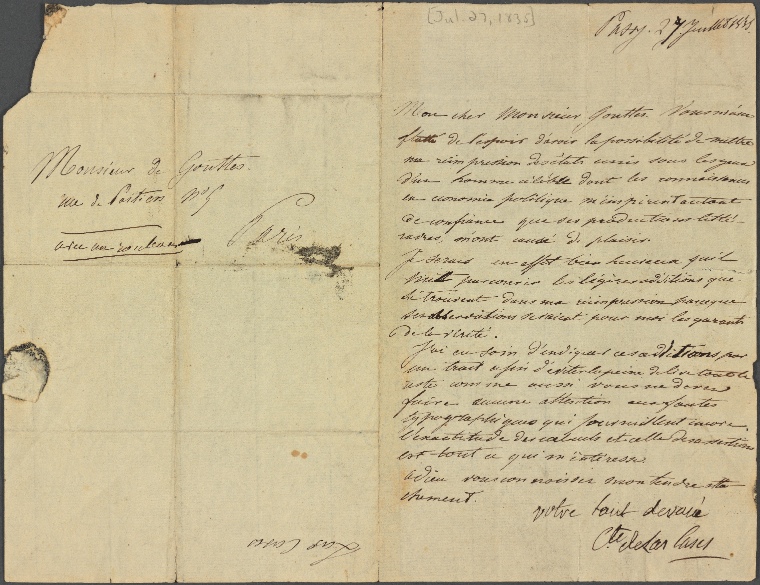 [Jul. 27, 1835]
Passy. 27 Juillet 1835.
Mon cher Monsieur Gouttes. Vous m'avez
flatté de l'espoir d'avoir la possibilité de mettre
ma réimpression des états unis sous les yeux
d'un homme célèbre dont les connaissances
en economie politique m'inspirent autant
de confiance que ses productions litté-
raires m'ont causé de plaisir.
Je serais en effet bien heureux qu'il
parcourir les légères additions que
se trouvent dans ma réimpression parceque
ses observations seraient pour moi les garants
de la vérité.
J'ai eu soin d'indiquer ces additions par
un trait afin d'éviter la peine de lire tout le
reste comme aussi vous ne devez
faire aucune attention aux fautes
typographiques qui fourmillent encore.
l'exactitude des calculs et celle des assertions
est tout ce qui m'intéresse
adieu vous connaissez mon tendre atta-
chement.
votre tout dévoué
Cte de Las Cases
Monsieur de Gouttes.
rue de No 5
avec un rouleau
Paris
Las Cases